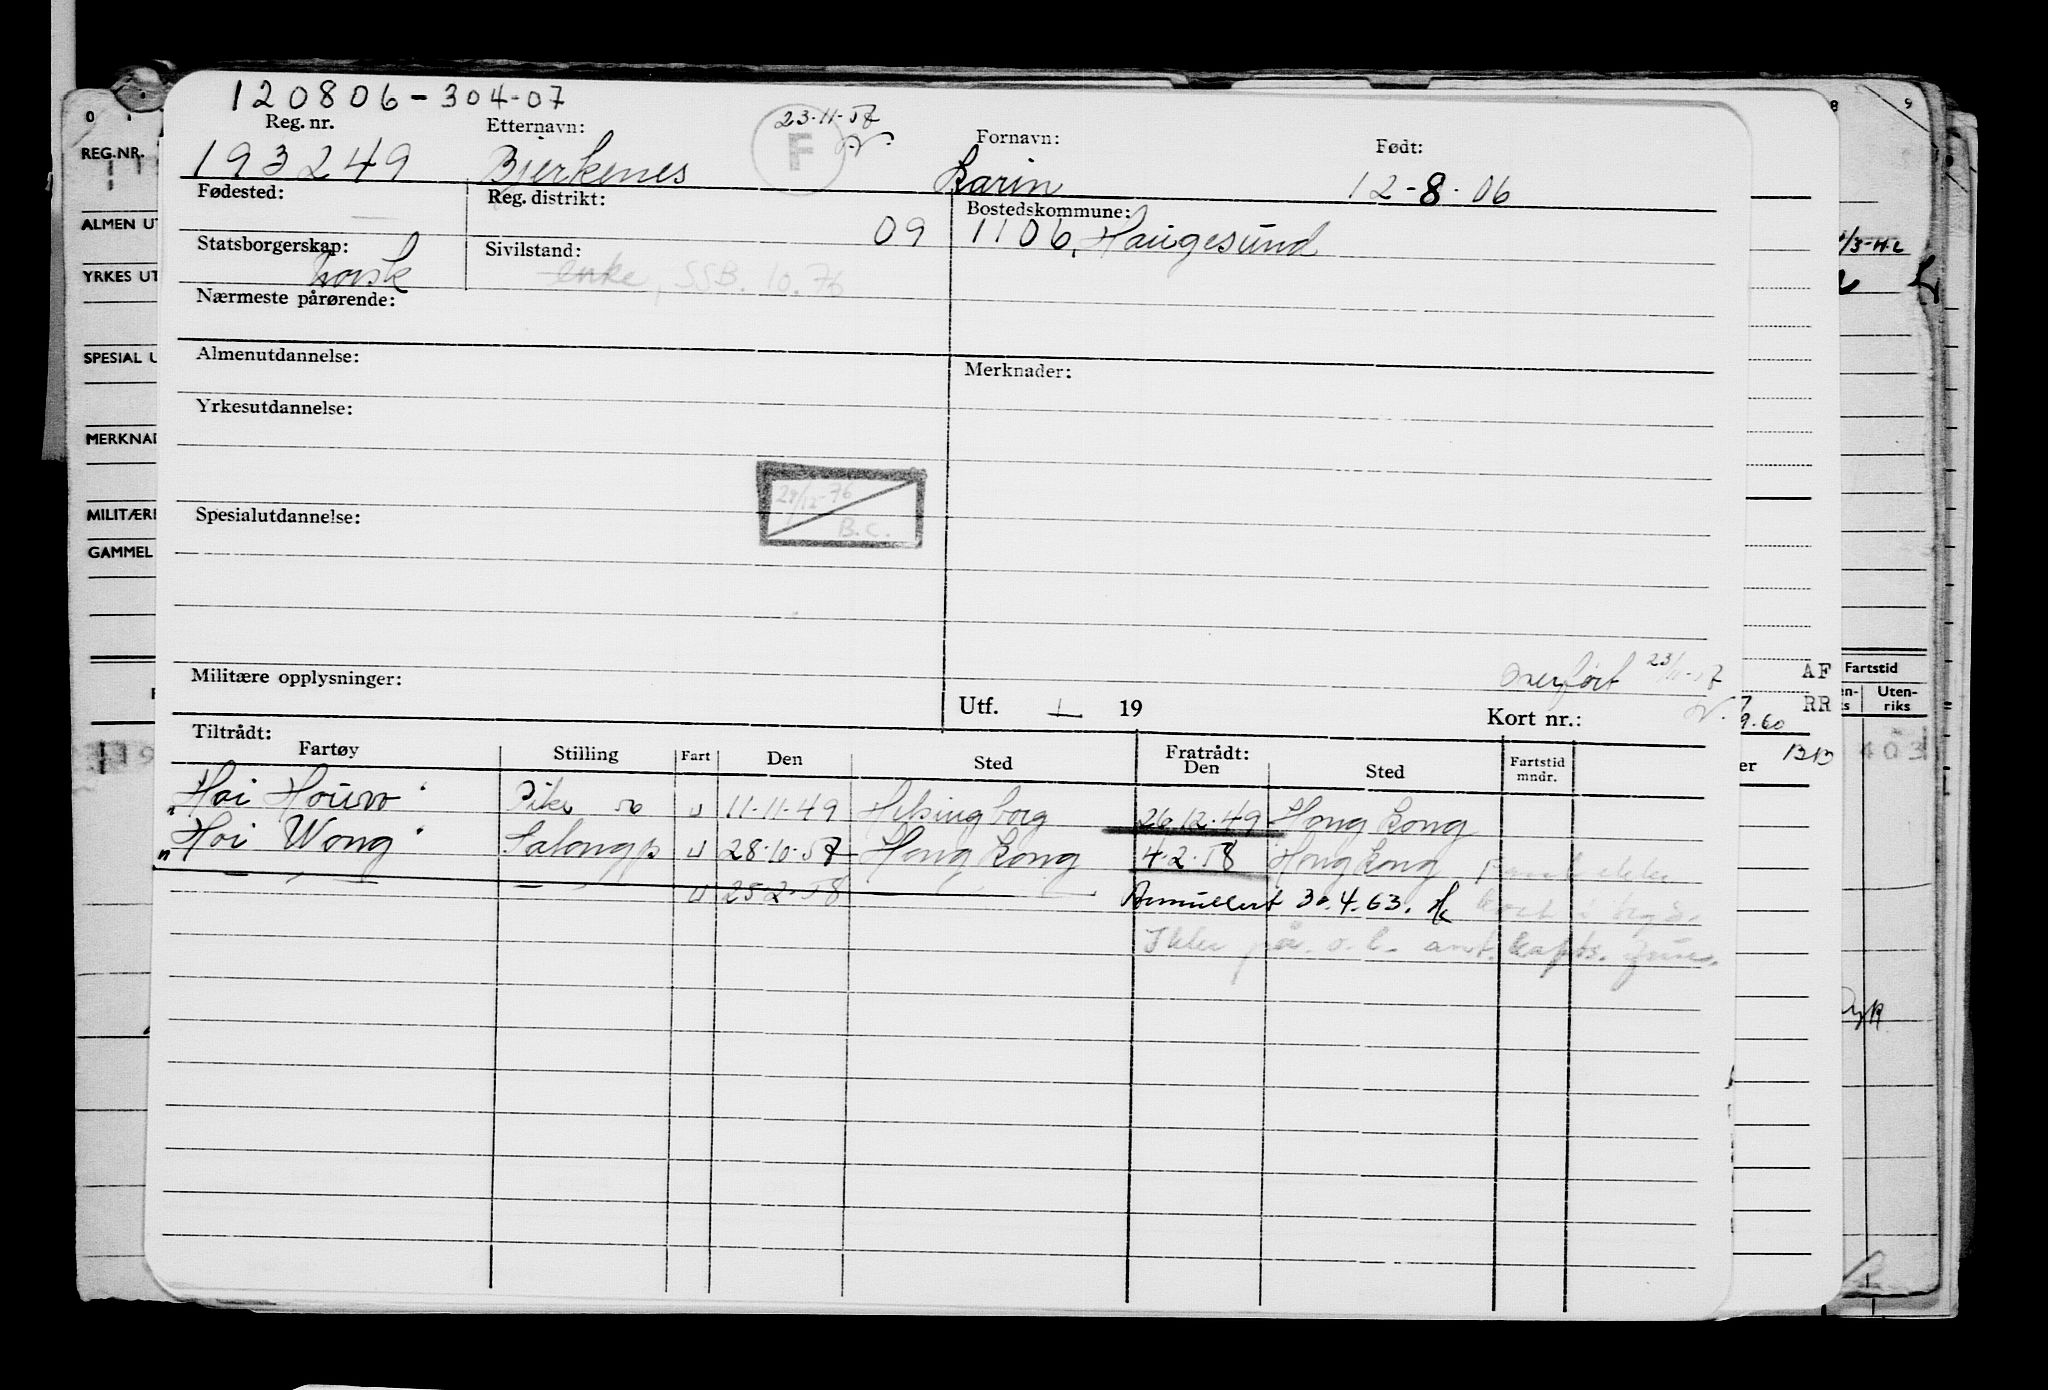 120806-304-07
Reg. nr. Etternavn: F 23-11-57 Fornavn: Født:
193249 Bjerkenes Karin 12-8-06
Fødested: Reg. distrikt: Bostedskommune:
09 1106, Haugesund
Statsborgerskap: Sivilstand:
norsk enke, SSB. 10.76
Nærmeste pårørende:
Almenutdannelse: Merknader:
Yrkesutdannelse:
29/12-76
B.C.
Spesialutdannelse:
Militære opplysninger: overført 23/11-57
Utf. / 19 Kort nr.:
Tiltrådt: Fratrådt:
Fartøy Stilling Fart Den Sted Den Sted Fartstid mndr.
"Hoi Houw" Pike so u 11-11-49 Helsingborg 26.12.49 Hong Kong
"Hoi Wong" Salongp u 28-10-57 Hong Kong 4.2.58 Hong Kong
u 25.2.58 Annullert 30.4.63. Hk
Ikke på o.l.
REG.NR.
ALMEN UT
YRKES UT
SPESIAL U
MERKNAD
MILITÆRE
GAMMEL
AF Fartstid
RR Uten-
riks
9.60
1313
er 403